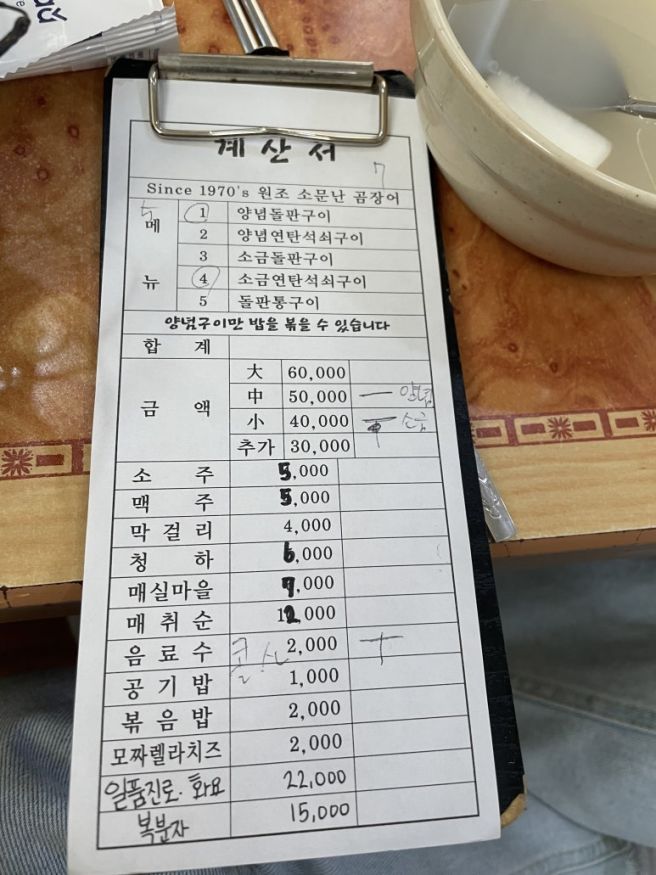 계산서
7
Since 1970's 원조 소문난 곰장어
메뉴
1 양념돌판구이
2 양념연탄석쇠구이
3 소금돌판구이
4 소금연탄석쇠구이
5 돌판통구이
양념구이만 밥을 볶을 수 있습니다
합 계
금 액
大 60,000
中 50,000 一 양념
小 40,000 소금
추가 30,000
소 주 5,000
맥 주 5,000
막 걸 리 4,000
청 하 6,000
매실마을 7,000
매 취 순 12,000
음 료 수 콜 사 2,000
공 기 밥 1,000
볶 음 밥 2,000
모짜렐라치즈 2,000
일품진로·화요 22,000
복분자 15,000